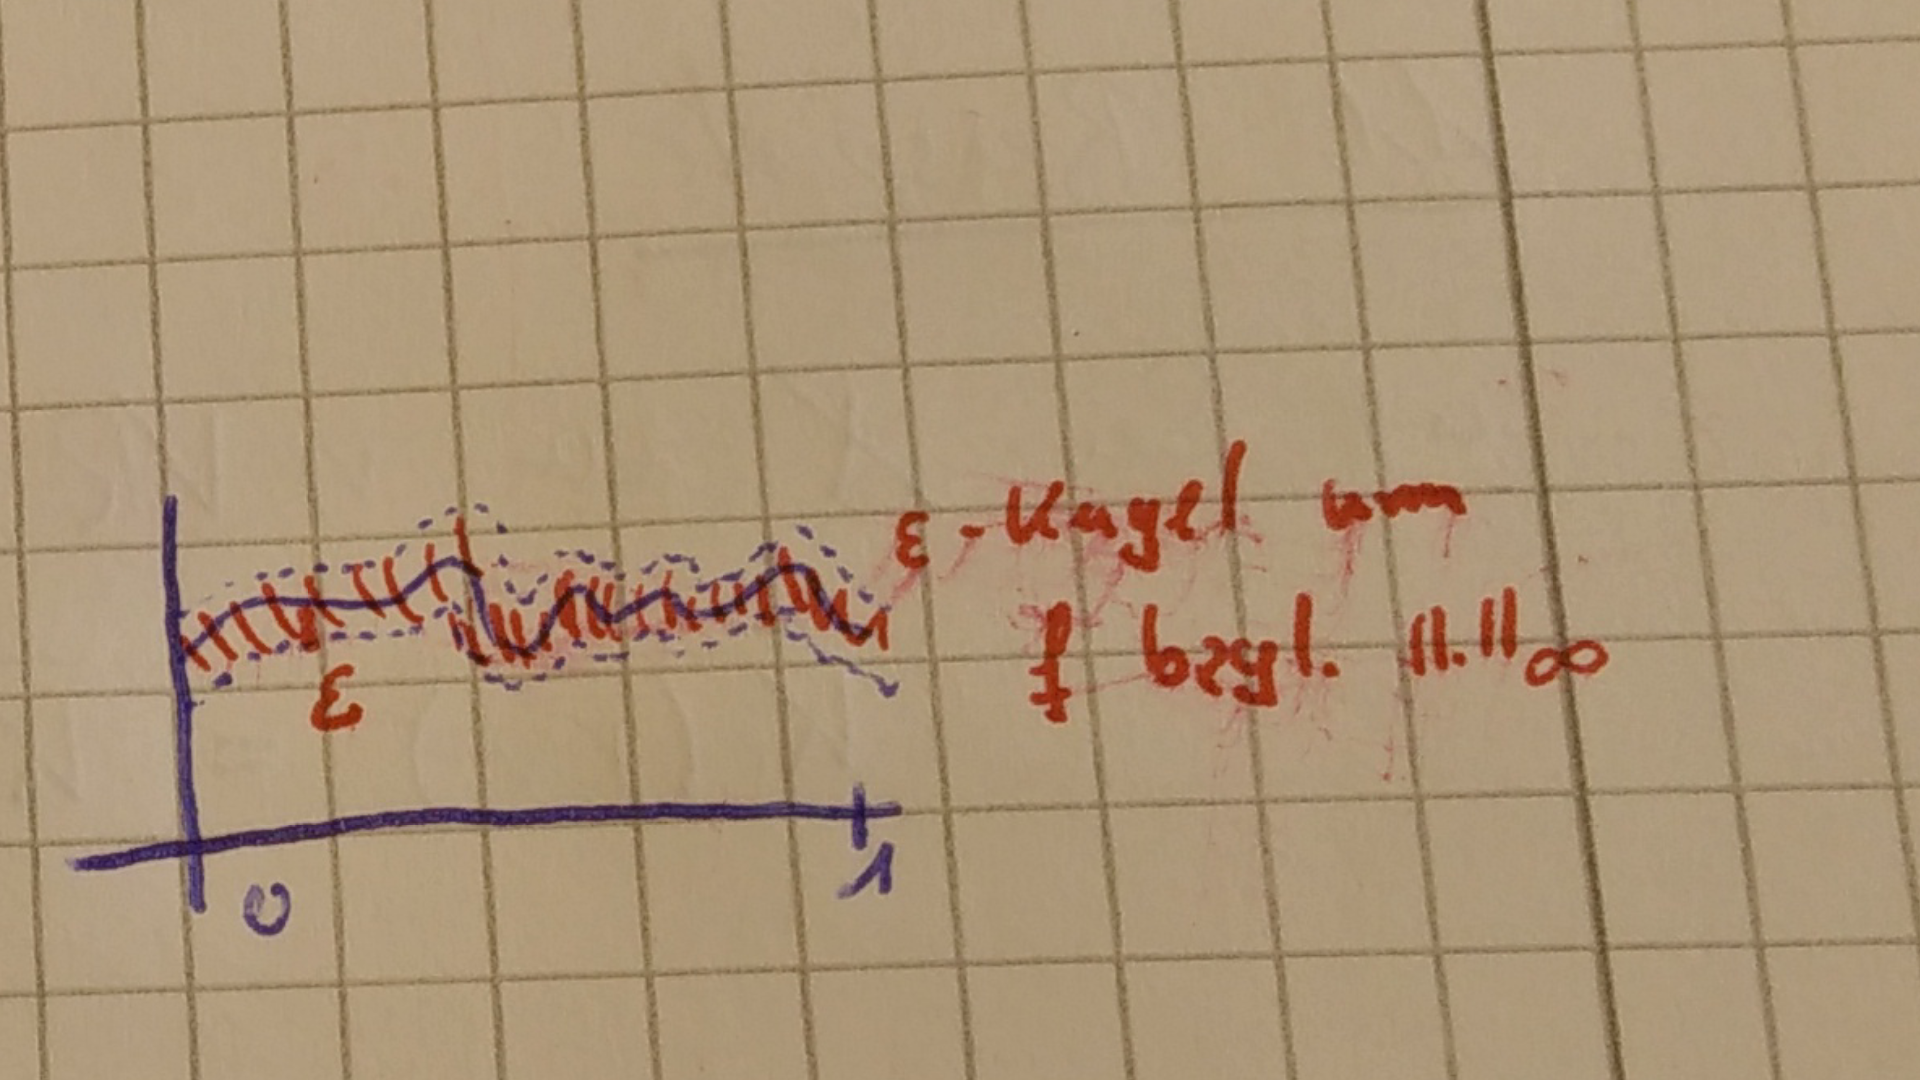 ε-Kugel um
f bzgl. ||.||∞
ε
0
1